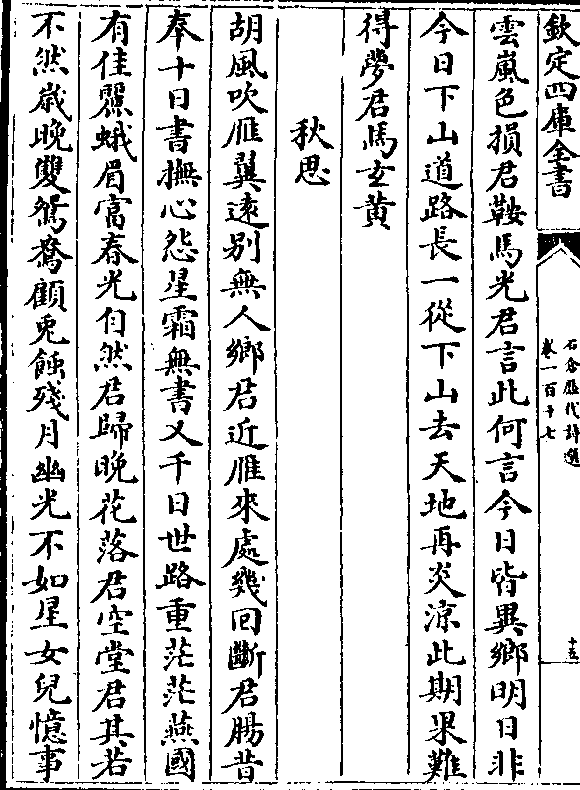 欽定四庫全書
石倉歷代詩選
卷一百十七
十五
雲嵐色損君鞍馬光君言此何言今日皆異鄉明日非
今日下山道路長一從下山去天地再炎涼此期果難
得夢君馬玄黃
秋思
胡風吹雁翼遠别無人鄉君近雁來處㡬回斷君腸昔
奉十日書撫心怨星霜無書又千日世路重茫茫燕國
有佳麗蛾眉富春光自然君歸晚花落君空堂君其若
不然嵗晚雙鴛鴦顧兎蝕殘月幽光不如星女兒憶事